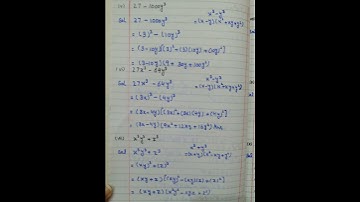 (v) 27 - 1000y³
Sol 27 - 1000y³ x³-y³
= (3)³ - (10y)³ =(x-y)(x²+xy+y²)
= (3-10y)[(3)²+(3)(10y)+(10y)²]
= (3-10y)(9 + 30y + 100y²)
(vi) 27x³ - 64y³ x³-y³
Sol 27x³ - 64y³ =(x-y)(x²+xy+y²)
= (3x)³ - (4y)³
= (3x-4y)[(3x)²+(3x)(4y)+(4y)²]
= (3x-4y)(9x²+12xy+16y²) Ans
(vii) x³y³ + z³
Sol x³y³ + z³ x³+y³
= (xy)³ + (z)³ =(x+y)(x²-xy+y²)
= (xy+z)[(xy)²-(xy)(z)+(z)²]
= (xy+z)(x²y²-xyz+z²)